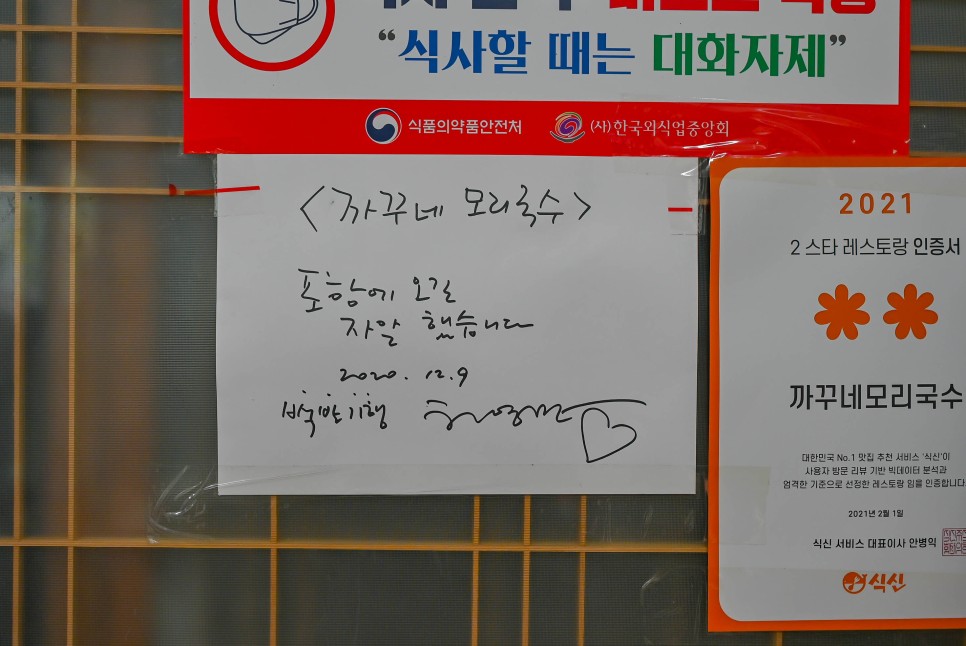 “식사할 때는 대화자제”
식품의약품안전처 (사)한국외식업중앙회
<까꾸네 모리국수>
포항에 오길
자알 했습니다
2020. 12. 9
백반기행 허영만
2021
2 스타 레스토랑 인증서
까꾸네모리국수
대한민국 No.1 맛집 추천 서비스 '식신'이
사용자 방문 리뷰 기반 빅데이터 분석과
엄격한 기준으로 선정한 레스토랑 임을 인증합니다.
2021년 2월 1일
식신 서비스 대표이사 안병익
식신